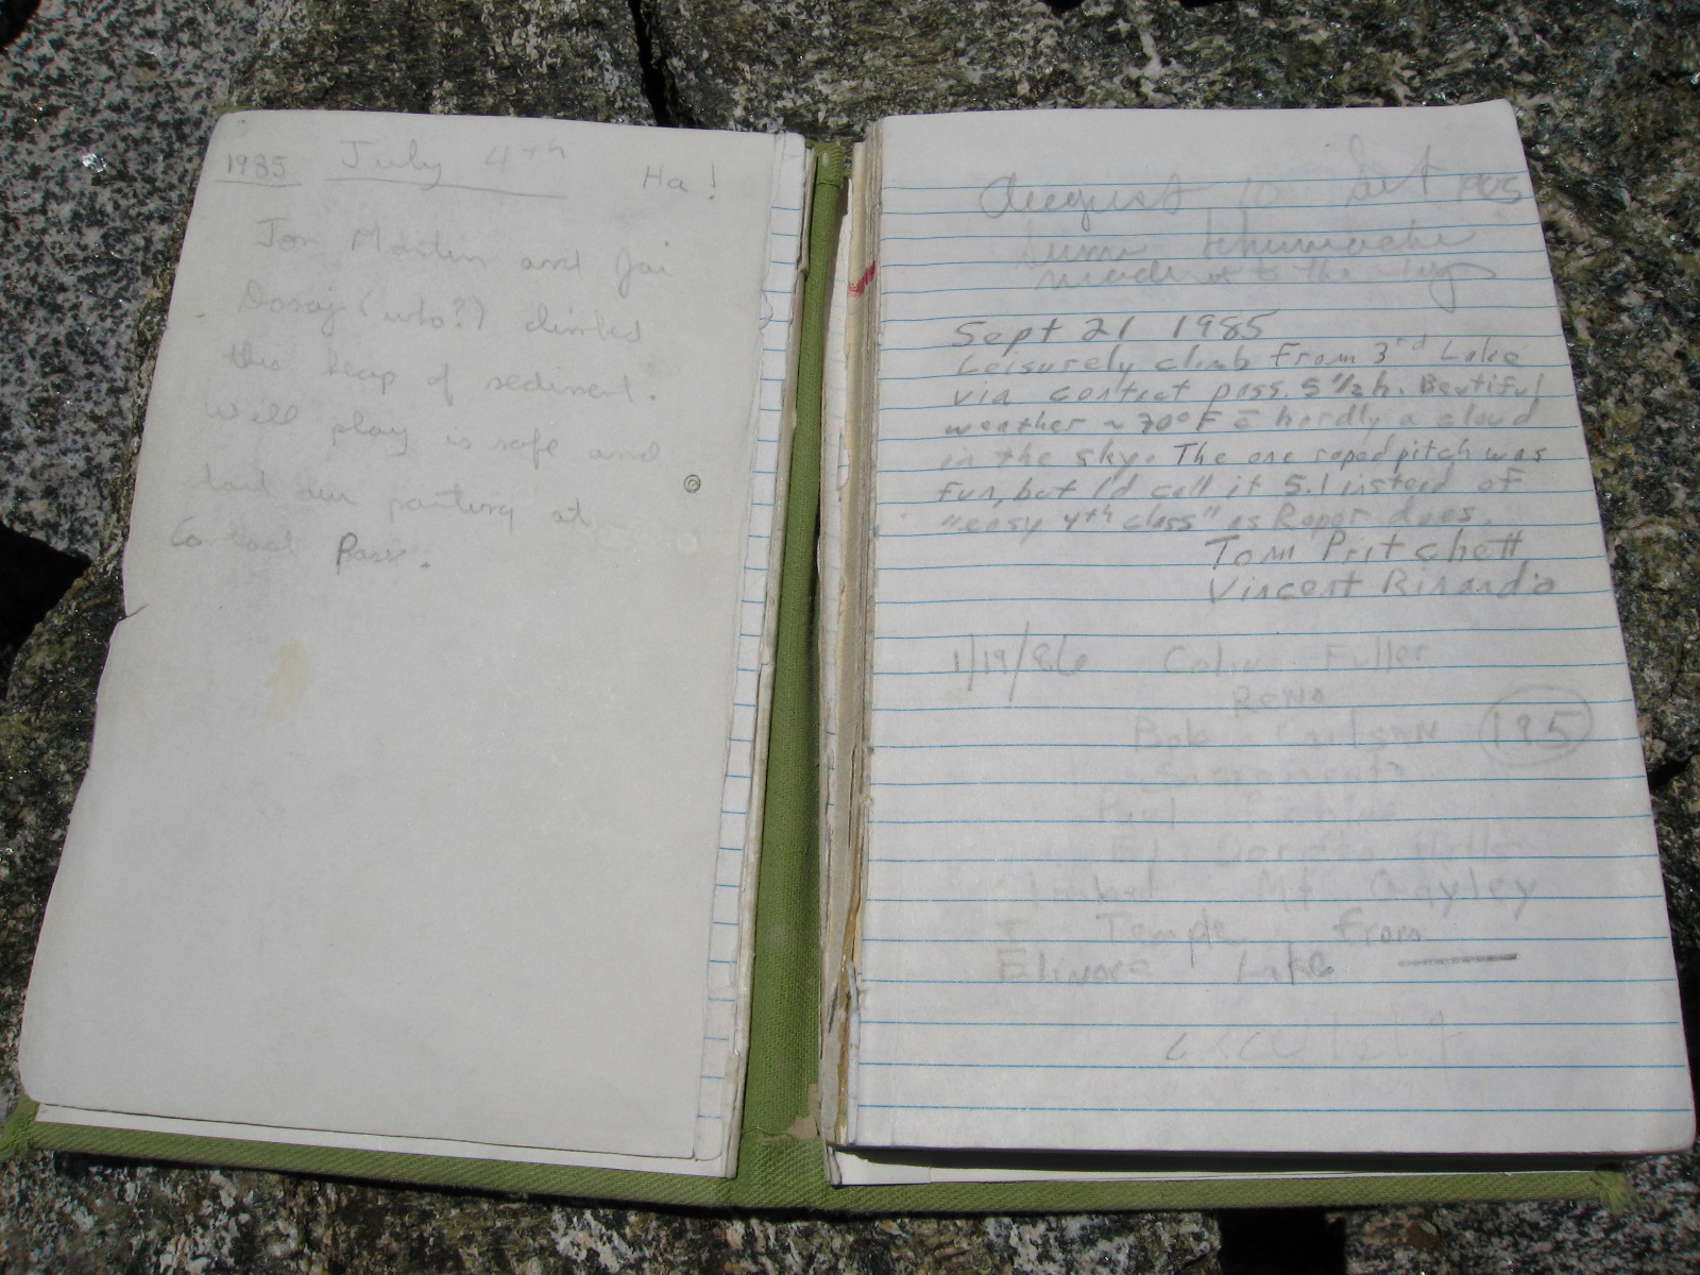 1985 July 4th Ha!
Jon Martin and Jai
Dosaj (who?) climbed
this heap of sediment.
Will play is safe and
at
Contact Pass.
August 10 Sat 1985
made it to the
Sept 21 1985
Leisurely climb from 3rd Lake
via contact pass. 5 1/2 h. Beutiful
weather ~ 70° F c̄ hardly a cloud
in the sky. The one roped pitch was
fun, but I'd call it 5.1 instead of
"easy 4th class" as Roper does.
Tom Pritchett
Vincent Rinardio
1/19/86 Colin Fuller
Reno
Bob 195
Sacramento
Climbed Mt Gayley
& Temple from
Elinore Lake